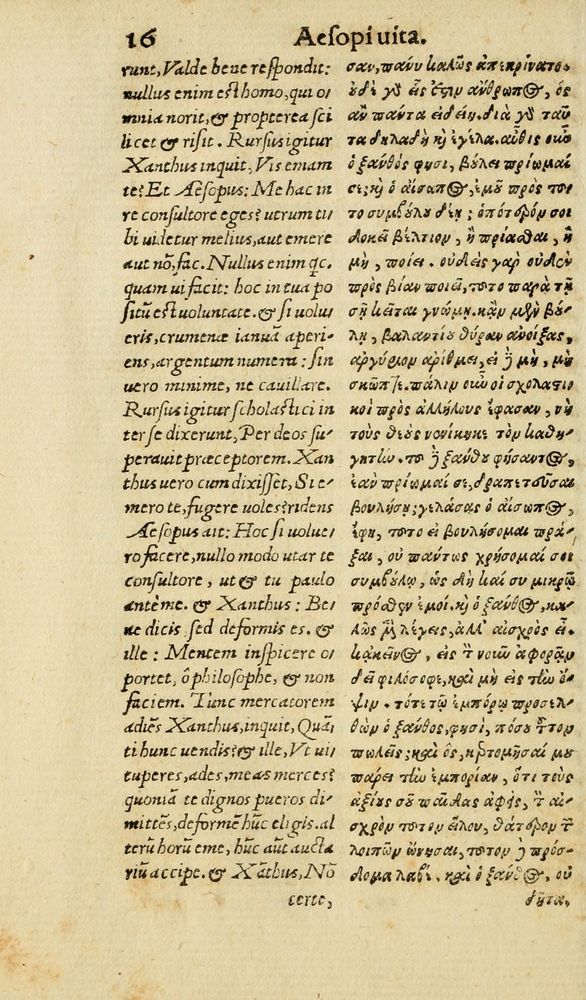 16 Aesopi uita.
runt, Valde bene respondit:
nullus enim est homo, qui o⸗
mnia norit, & propterea sci
licet & risit. Rursus igitur
Xanthus inquit, Vis emam
te? Et Aesopus: Me hac in
re consultore eges? utrum ti⸗
bi uidetur melius, aut emere
aut nõ, fac. Nullus enim q̃c.
quam ui facit: hoc in tua po
situm est uoluntate. & si uolu
eris, crumenæ ianuã aperi⸗
ens, argentum numera: sin
uero minime, ne cauillare.
Rursus igitur scholastici in
ter se dixerunt, Per deos su⸗
perauit præceptorem. Xan
thus uero cum dixisset, Si e⸗
mero te, fugere uoles? ridens
Aesopus ait: Hoc si uolue⸗
ro facere, nullo modo utar te
consultore, ut & tu paulo
antè me. & Xanthus: Be⸗
ne dicis, sed deformis es. &
ille: Mentem inspicere o⸗
portet, ô philosophe, & non
faciem. Tunc mercatorem
adiẽs Xanthus, inquit, Quã
ti hunc uendis? & ille, Vt ui⸗
tuperes, ades, meas merces?
quoniã te dignos pueros di⸗
mittẽs, deformẽ hũc eligis. al
terũ horũ eme, hũc aũt aucta
riũ accipe. & Xãthus, Nõ
certe,
σαν, πάνυ καλῶς ἀπεκρίνατο.
οὐδὲ γὸ εἷς ἐστιν ἄνθρωπος, ὃς
ἂν πάντα εἰδείη. διὰ γὸ ταῦ
τα δηλαδὴ κỳ ἐγέλα. αὖθις οὖν
ὁ ξανθός φησι, βούλει πρίωμαί
σε; κỳ ὁ αἴσωπος, ἐμοῦ πρὸς τοῦ
το συμβούλου δέῃ; ὁπότερόν σοι
δοκεῖ βέλτιον, ἢ πρίασθαι, ἢ
μὴ, ποίει. οὐδεὶς γὰρ οὐδὲν
πρὸς βίαν ποιεῖ, τοῦτο παρὰ τῇ
σῇ κεῖται γνώμῃ. κἂν μὲν βού⸗
λῃ, βαλαντίου θύραν ἀνοίξας,
ἀργύριον ἀρίθμει, εἰ δὲ μὴ, μὴ
σκῶπτε. πάλιν οὖν οἱ σχολαστι
κοὶ πρὸς ἀλλήλους ἔφασαν, νὴ
τοὺς θεοὺς νενίκηκε τὸν καθη⸗
γητήν. τοῦ δὲ ξάνθου φήσαντος,
ἐὰν πρίωμαί σε, δραπετεῦσαι
βουλήσῃ; γελάσας ὁ αἴσωπος,
ἔφη, τοῦτο εἰ βουλήσομαι πρᾶ⸗
ξαι, οὐ πάντως χρήσομαί σοι
συμβούλῳ, ὡς δὴ καὶ σὺ μικρῷ
πρόσθεν ἐμοί. κỳ ὁ ξάνθος, κα⸗
λῶς μὲν λέγεις, ἀλλ᾽ αἰσχρὸς εἶ.
κἀκεῖνος, εἰς τὸν νοῦν ἀφορᾶν
δεῖ φιλόσοφε, καὶ μὴ εἰς τὴν ὄ⸗
ψιν. τότε τῷ ἐμπόρῳ προσελ⸗
θὼν ὁ ξανθὸς, φησὶ, πόσου τοῦτον
πωλεῖς; καὶ ὃς, κερτομῆσαί μου
πάρει τὴν ἐμπορίαν, ὅτι τοὺς
ἀξίους σοῦ παῖδας ἀφεὶς, τὸν αἰ⸗
σχρὸν τοῦτον εἵλου, θάτερον τῶν
λοιπῶν ὤνησαι, τοῦτον δὲ πρόσ⸗
δομα λαβέ. καὶ ὁ ξάνθος, οὐ
δῆτα,